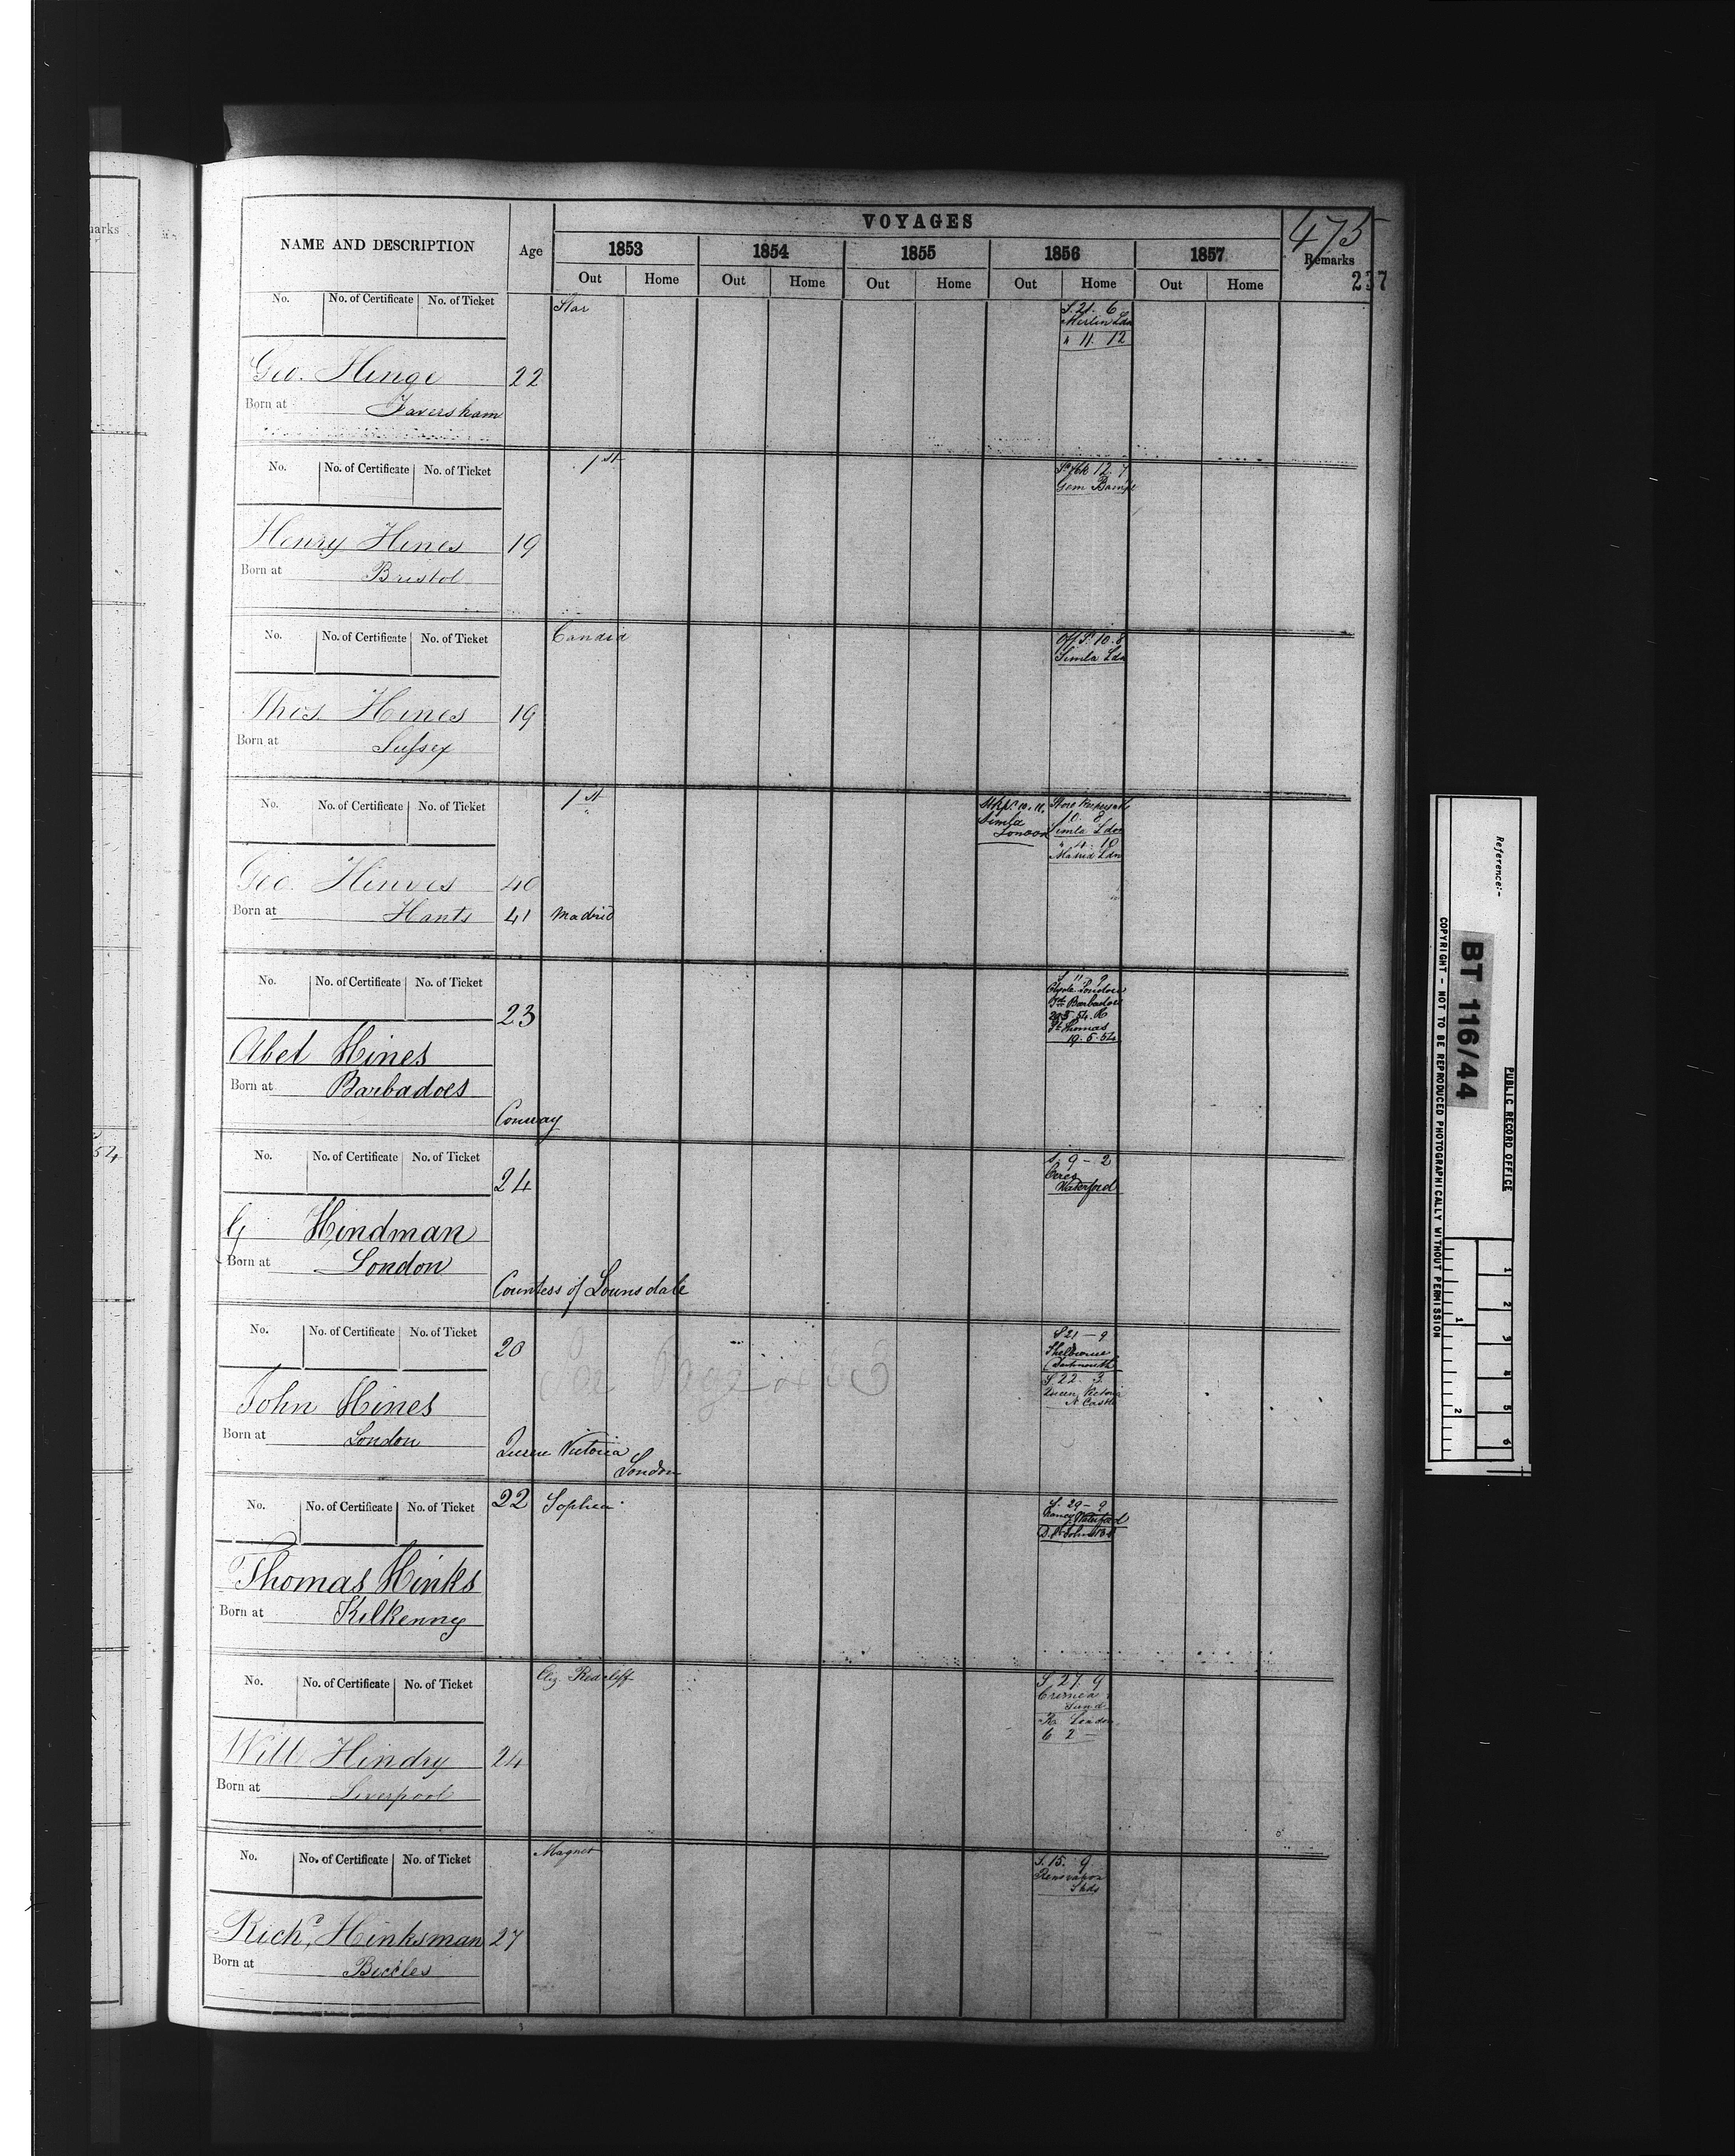 arks
54
475
237
NAME AND DESCRIPTION
Age
VOYAGES
Remarks
1853 1854 1855 1856 1857
Out Home Out Home Out Home Out Home Out Home
No. No. of Certificate No. of Ticket
Star
S. 21. 6
Merlin Ldn
" 11. 12
Geo. Hinge 22
Born at Faversham
No. No. of Certificate No. of Ticket
1st
12. 7
Gem
Henry Hines 19
Born at Bristol
No. No. of Certificate No. of Ticket
Candid
10. 8
Simla Ldn
Thos Hines 19
Born at Sussex
No. No. of Certificate No. of Ticket
1st
10. 11.
Simla
London
10. 8
Simla Ldn
" 4. 10
Madrid Ldn
Geo. Hinves 40
Born at Hants 41 Madrid
No. No. of Certificate No. of Ticket
23
S 11 9
Clyde London
Barbadoes
St Thomas
19. 5. 54
Abel Hines
Born at Barbadoes
Conway
No. No. of Certificate No. of Ticket
24
S. 9 - 2
Ceres
Waterford
G Hindman
Born at London
Countess of Lounsdale
No. No. of Certificate No. of Ticket
20
See Page
S 21 - 9
Shelbourne
Dartmouth
S. 22. 3
Queen Victoria
N Castle
John Hines
Born at London
Queen Victoria
London
No. No. of Certificate No. of Ticket
22 Sophia
S. 29 - 9
Nancy Waterford
Thomas Hinks
Born at Kilkenny
No. No. of Certificate No. of Ticket
Eliz. Redcliff
S 27. 9
Crimea
Sund
London
6 2 -
Will Hindry 24
Born at Liverpool
No. No. of Certificate No. of Ticket
Magnet
S. 15. 9
Renovation
Shds
Richd. Hinksman 27
Born at Beccles
Reference:-
PUBLIC RECORD OFFICE
BT 116/44
COPYRIGHT - NOT TO BE REPRODUCED PHOTOGRAPHICALLY WITHOUT PERMISSION
1 2 3 4 5 6
1 2